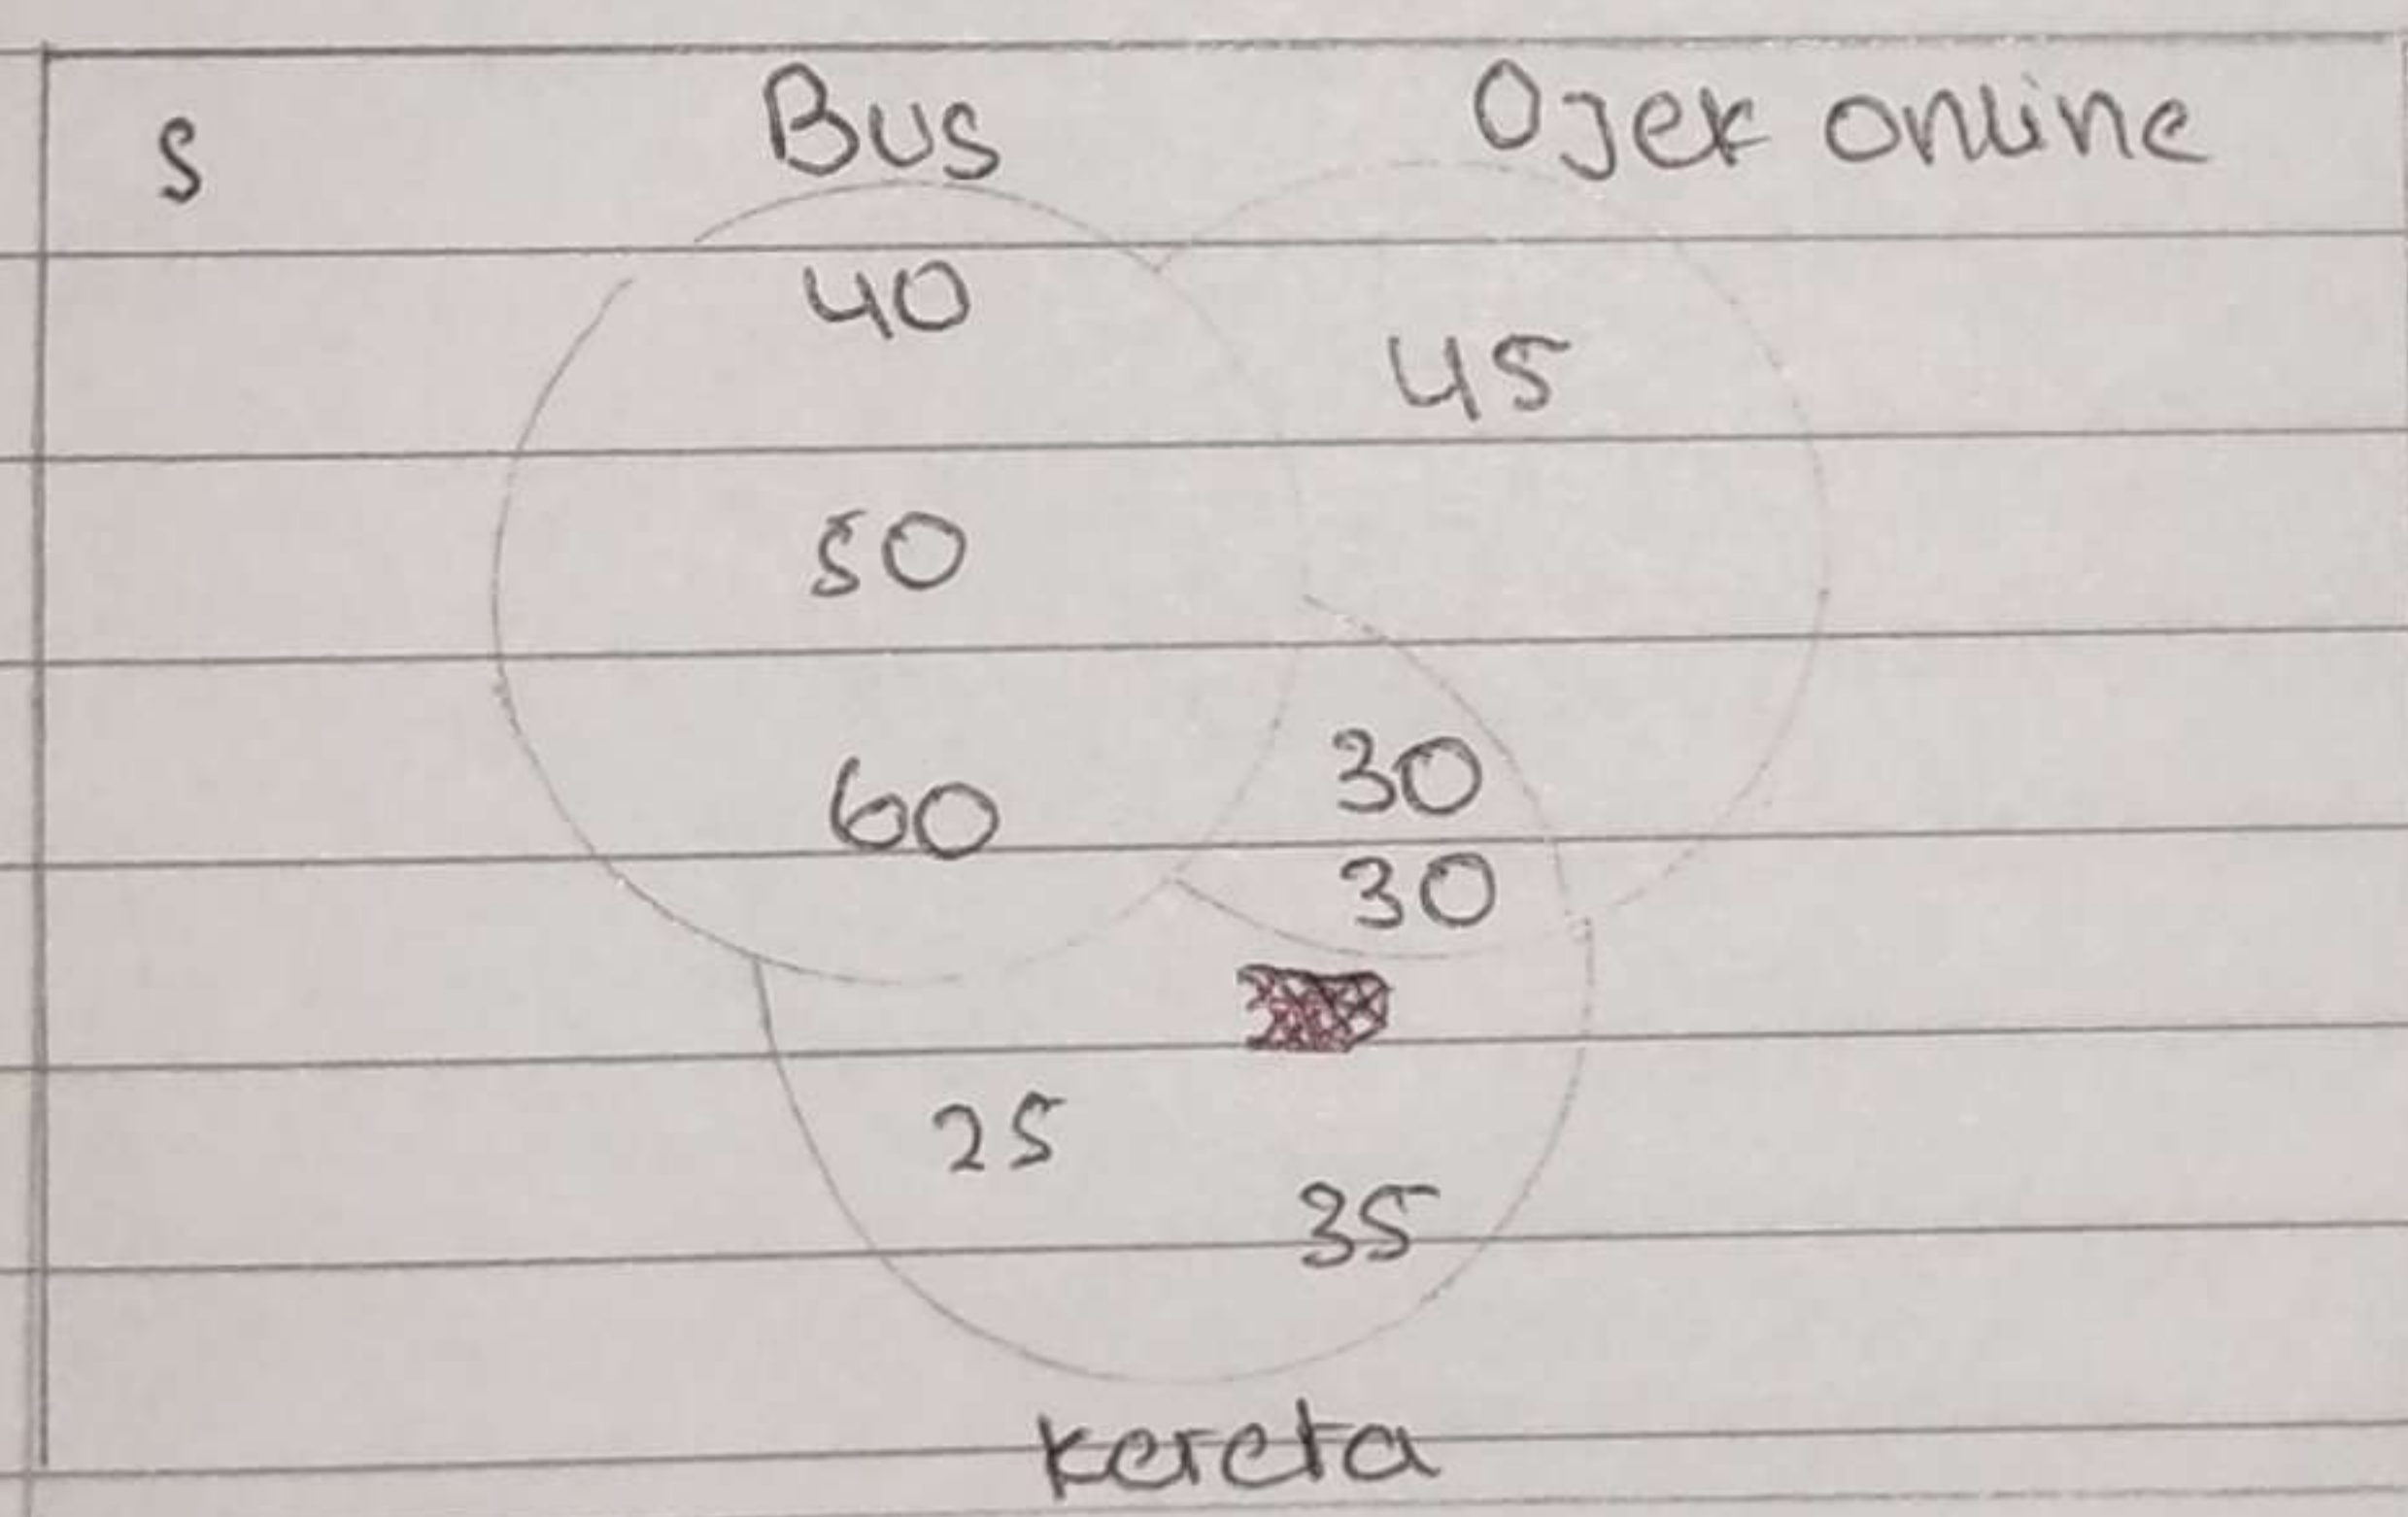 S Bus Ojek online
40
45
50
60
30
30
25
35
kereta